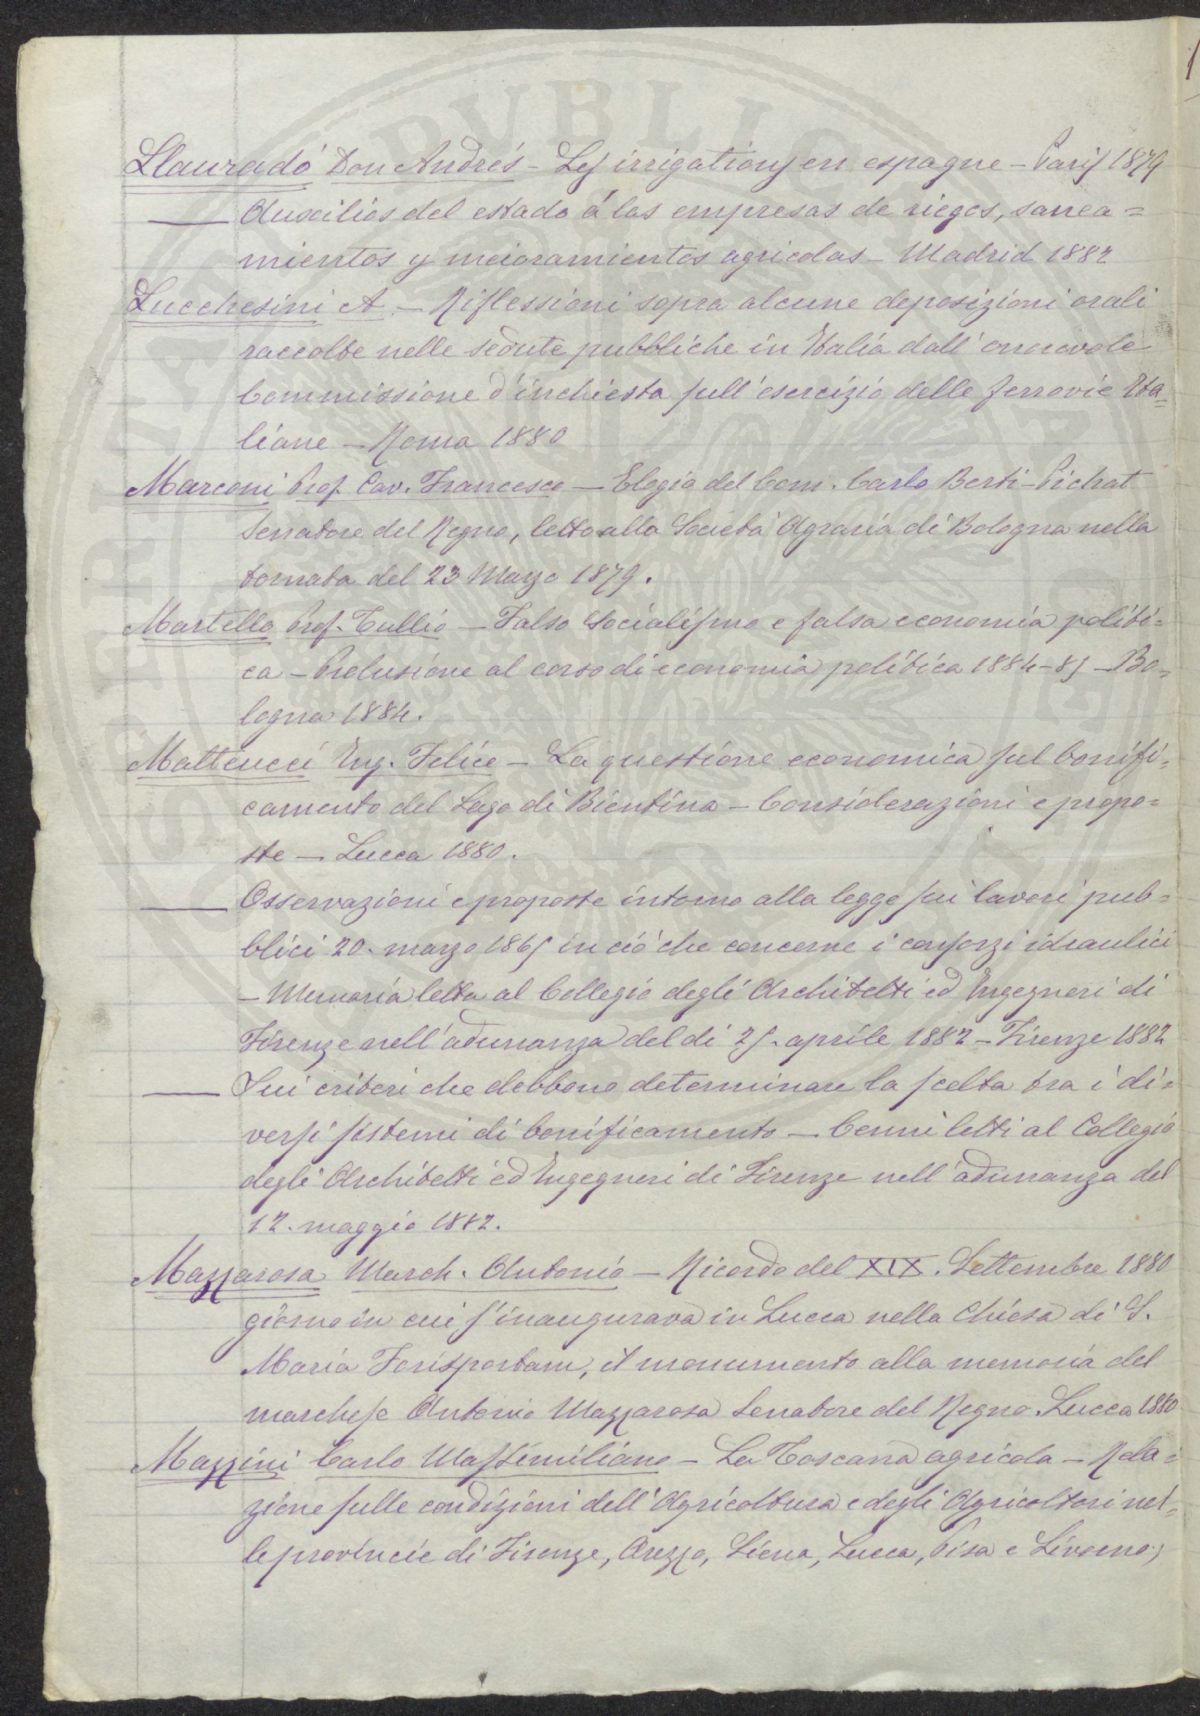 Llauradó Don Andrés – Les irrigations en espagne – Paris 1879
—— Auxilios del estado á las empresas de riegos, sanea=
mientos y meioramientos agricolas – Madrid 1882
Lucchesini A. – Riflessioni sopra alcune deposizioni orali
raccolte nelle sedute pubbliche in Italia dall' onorevole
Commissione d'inchiesta sull'esercizio delle ferrovie Ita=
liane – Roma 1880
Marconi Prof. Cav. Francesco – Elogio del Com. Carlo Berti-Pichat
Senatore del Regno, letto alla Società Agraria di Bologna nella
tornata del 23 Marzo 1879.
Martello Prof. Tullio – Falso Socialismo e falsa economia politi=
ca – Prolusione al corso di economia politica 1884-85 – Bo=
logna 1884.
Matteucci Ing. Felice – La questione economica sul bonifi=
camento del Lago di Bientina – Considerazioni e propo=
ste – Lucca 1880.
—— Osservazioni e proposte intorno alla legge sui lavori pub=
blici 20. marzo 1865 in ciò che concerne i consorzi idraulici
– Memoria letta al Collegio degli Architetti ed Ingegneri di
Firenze nell'adunanza del di 25. aprile 1882 – Firenze 1882
—— Sui criteri che debbono determinare la scelta tra i di=
versi sistemi di bonificamento – Cenni letti al Collegio
degli Architetti ed Ingegneri di Firenze nell'adunanza del
12. maggio 1882.
Mazzarosa March. Antonio – Ricordo del XIX. Settembre 1880
giorno in cui s'inaugurava in Lucca nella Chiesa di S.
Maria Forisportam, il monumento alla memoria del
marchese Antonio Mazzarosa Senatore del Regno. Lucca 1880
Mazzini Carlo Massimiliano – La Toscana agricola – Rela=
zione sulle condizioni dell'Agricoltura e degli Agricoltori nel=
le provincie di Firenze, Arezzo, Siena, Lucca, Pisa e Livorno;